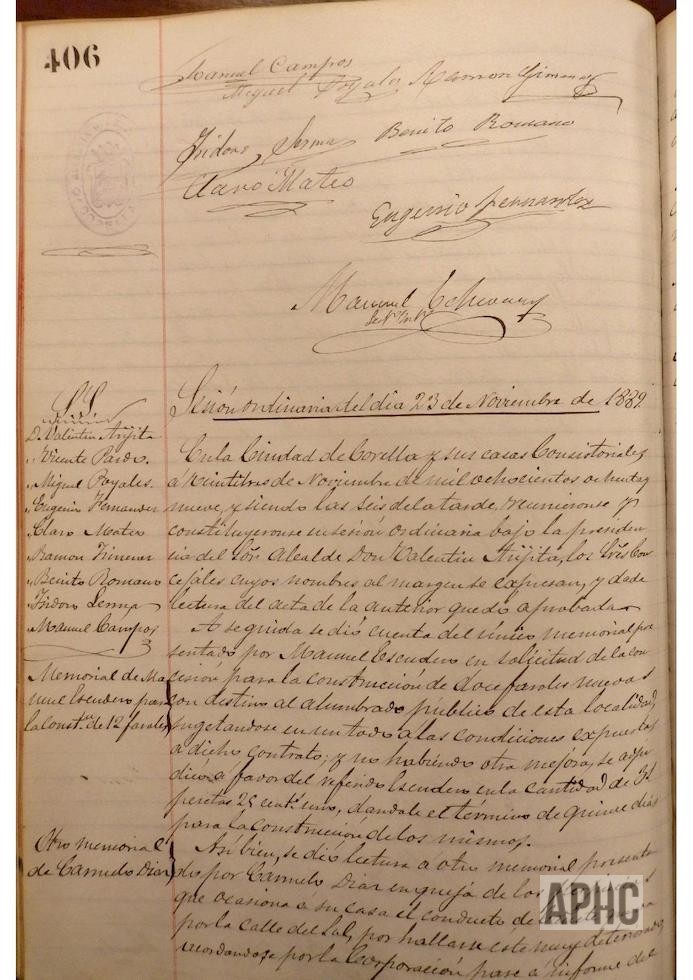 406
Manuel Campos
Miguel Poyales Ramon Gimenez
Isidoro Serma Benito Romano
Claro Mateo
Eugenio Fernandez
Manuel Echevarry
Sesión ordinaria del dia 23 de Noviembre de 1889.
D. Valentin Arijita
" Vicente Pardo.
" Miguel Poyales.
" Eugenio Fernandez
" Claro Mateo
" Ramon Jimenez
" Benito Romano
" Isidoro Serma
" Manuel Campos
En la Ciudad de Corella y sus casas Consistoriales
á veintitres de Noviembre de mil ochocientos ochenta y
nueve, y siendo las seis de la tarde, reunieronse y
constituyeronse en sesión ordinaria bajo la presiden
cia del Sor. Alcalde Don Valentin Arijita, los Sres Con
cejales cuyos nombres al margen se expresan, y dada
lectura del acta de la anterior quedó aprobada
Memorial de Ma
nuel Escudero para
la const.n de 12 faroles
A seguida se dió cuenta del único memorial pre
sentado por Manuel Escudero en solicitud de la con
cesión para la construcción de doce faroles nuevos
con destino al alumbrado publico de esta localidad,
sugetandose en un todo á las condiciones expuestas
a dicho contrato; y no habiendo otra mejora, se adju
dicó a favor del referido Escudero en la cantidad de
pesetas 25 cent.s uno, dandole el término de quince dias
para la construcción de los mismos.
Otro memorial
de Carmelo Diaz
Asi bien, se dió lectura a otro memorial presenta
do por Carmelo Diaz en queja de los
que ocasiona a su casa el conducto de
por la calle del Sol, por hallarse éste muy deteriorado
acordandose por la Corporación pase á informe del
APHC